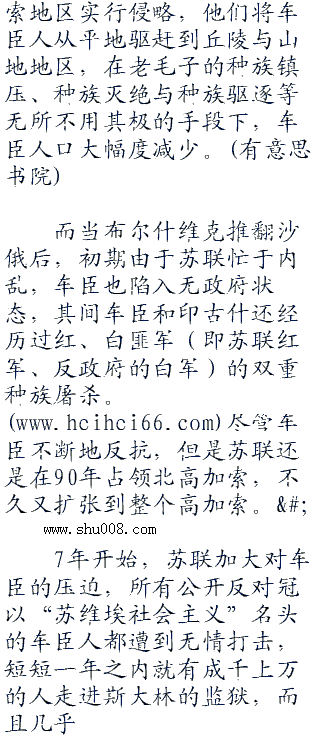 索地区实行侵略，他们将车
臣人从平地驱赶到丘陵与山
地地区，在老毛子的种族镇
压、种族灭绝与种族驱逐等
无所不用其极的手段下，车
臣人口大幅度减少。(有意思
书院)
而当布尔什维克推翻沙
俄后，初期由于苏联忙于内
乱，车臣也陷入无政府状
态，其间车臣和印古什还经
历过红、白匪军（即苏联红
军、反政府的白军）的双重
种族屠杀。
(www.hcihci66.com)尽管车
臣不断地反抗，但是苏联还
是在90年占领北高加索，不
久又扩张到整个高加索。&#;
www.shu008.com
7年开始，苏联加大对车
臣的压迫，所有公开反对冠
以“苏维埃社会主义”名头
的车臣人都遭到无情打击，
短短一年之内就有成千上万
的人走进斯大林的监狱，而
且几乎